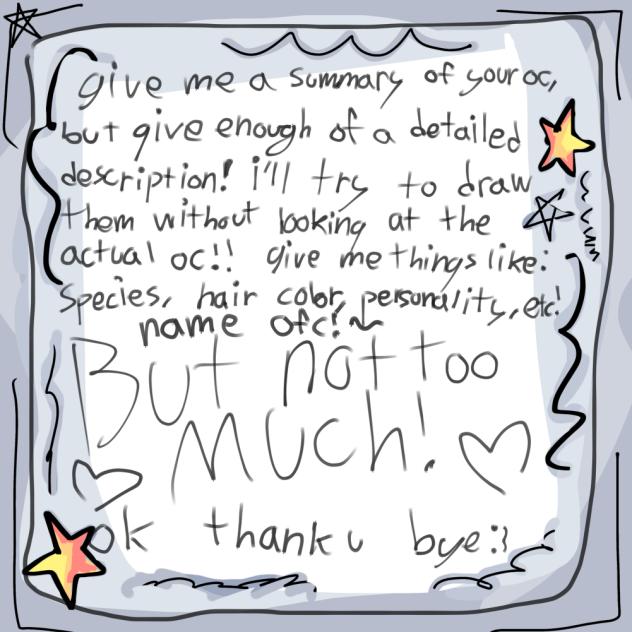 give me a summary of your oc,
but give enough of a detailed
description! i'll try to draw
them without looking at the
actual oc!! give me things like:
species, hair color, personality, etc!
name ofc!~
But not too
much! ♡
♡
ok thank u bye :3